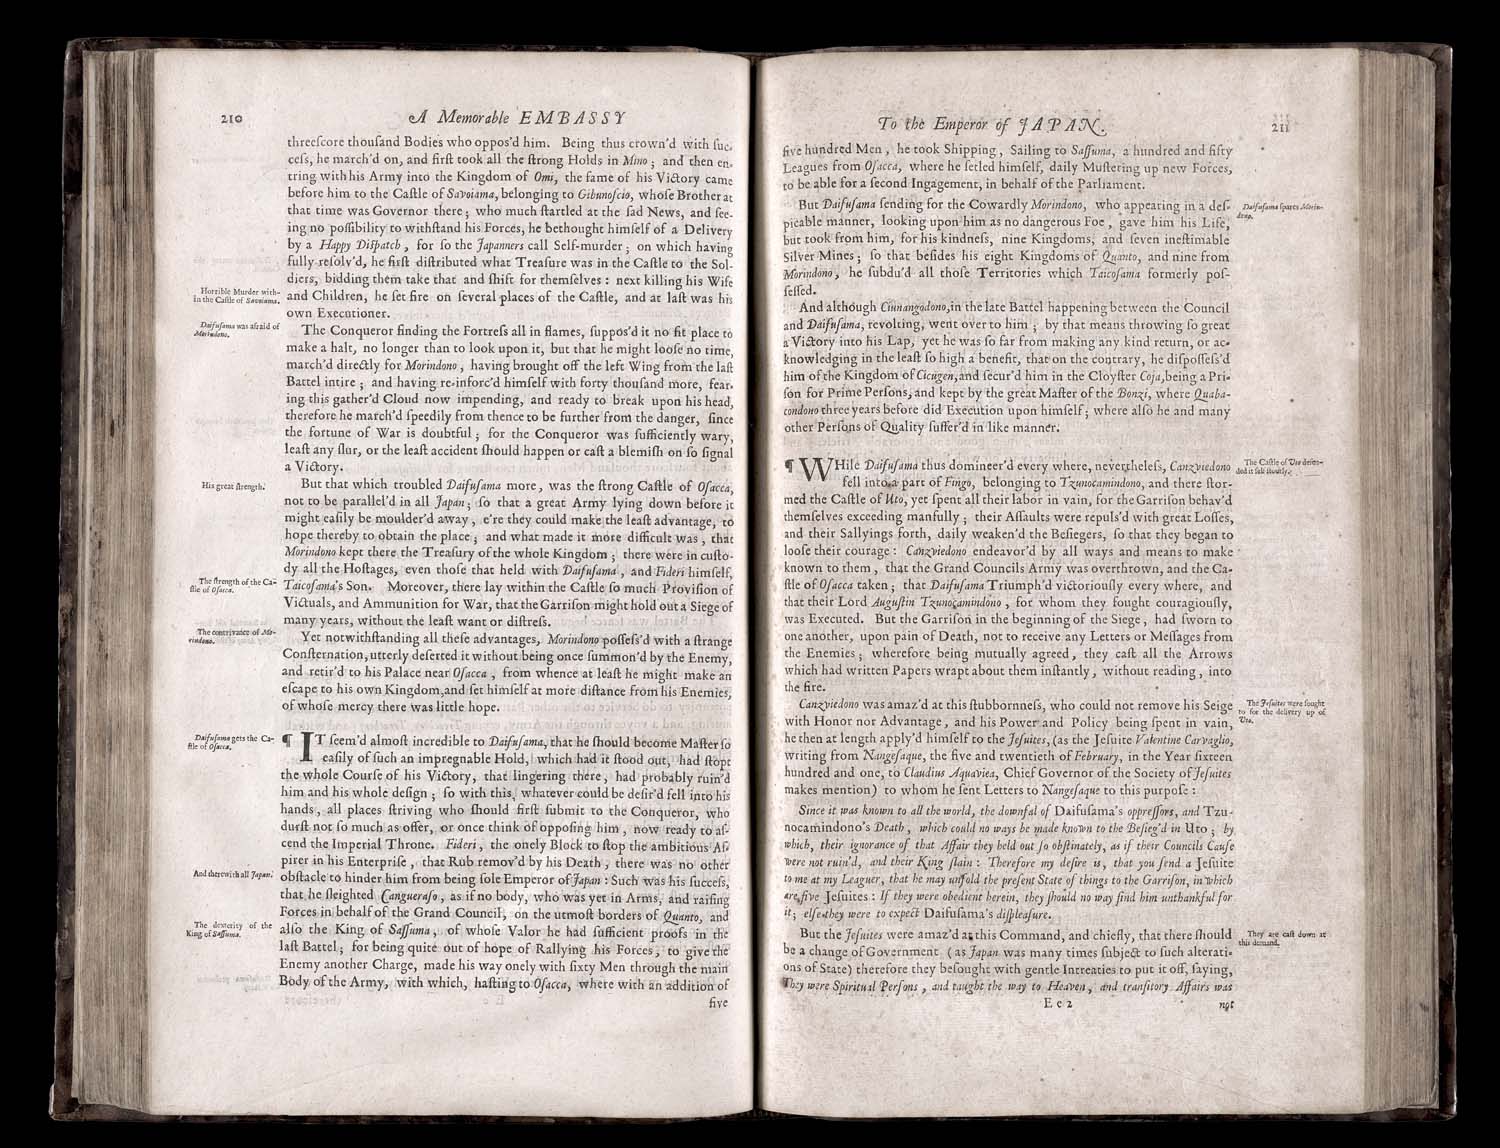 210
A Memorable EMBASSY
threeſcore thouſand Bodies who oppos'd him. Being thus crown'd with ſuc-
ceſs, he march'd on, and firſt took all the ſtrong Holds in Mino ; and then en-
tring with his Army into the Kingdom of Omi, the fame of his Victory came
before him to the Caſtle of Savoiama, belonging to Gibunoſcio, whoſe Brother at
that time was Governor there ; who much ſtartled at the ſad News, and ſee-
ing no poſſibility to withſtand his Forces, he bethought himſelf of a Delivery
by a Happy Diſpatch , for ſo the Japanners call Self-murder ; on which having
fully reſolv'd, he firſt diſtributed what Treaſure was in the Caſtle to the Sol-
diers, bidding them take that and ſhift for themſelves : next killing his Wife
and Children, he ſet fire on ſeveral places of the Caſtle, and at laſt was his
own Executioner.
Horrible Murder with-
in the Caſtle of Savoiama.
The Conqueror finding the Fortreſs all in flames, ſuppos'd it no fit place to
make a halt, no longer than to look upon it, but that he might looſe no time,
march'd directly for Morindono , having brought off the left Wing from the laſt
Battel intire ; and having re-inforc'd himſelf with forty thouſand more, fear-
ing this gather'd Cloud now impending, and ready to break upon his head,
therefore he march'd ſpeedily from thence to be further from the danger, ſince
the fortune of War is doubtful ; for the Conqueror was ſufficiently wary,
leaſt any ſlur, or the leaſt accident ſhould happen or caſt a blemiſh on ſo ſignal
a Victory.
Daifuſama was afraid of
Morindono.
But that which troubled Daifuſama more , was the ſtrong Caſtle of Oſacca,
not to be parallel'd in all Japan ; ſo that a great Army lying down before it
might eaſily be moulder'd away , e're they could make the leaſt advantage, to
hope thereby to obtain the place ; and what made it more difficult was , that
Morindono kept there the Treaſury of the whole Kingdom ; there were in cuſto-
dy all the Hoſtages, even thoſe that held with Daifuſama , and Fideri himſelf,
Taicoſama's Son. Moreover, there lay within the Caſtle ſo much Proviſion of
Victuals, and Ammunition for War, that the Garriſon might hold out a Siege of
many years, without the leaſt want or diſtreſs.
His great ſtrength.
The ſtrength of the Ca-
ſtle of Oſacca.
Yet notwithſtanding all theſe advantages, Morindono poſſeſs'd with a ſtrange
Conſternation, utterly deſerted it without being once ſummon'd by the Enemy,
and retir'd to his Palace near Oſacca , from whence at leaſt he might make an
eſcape to his own Kingdom,and ſet himſelf at more diſtance from his Enemies,
of whoſe mercy there was little hope.
The contrivance of Mo-
rindono.
¶ IT ſeem'd almoſt incredible to Daifuſama, that he ſhould become Maſter ſo
eaſily of ſuch an impregnable Hold, which had it ſtood out, had ſtopt
the whole Courſe of his Victory, that lingering there, had probably ruin'd
him and his whole deſign ; ſo with this, whatever could be deſir'd fell into his
hands , all places ſtriving who ſhould firſt ſubmit to the Conqueror, who
durſt not ſo much as offer, or once think of oppoſing him , now ready to aſ-
cend the Imperial Throne. Fideri , the onely Block to ſtop the ambitious Aſ-
pirer in his Enterpriſe , that Rub remov'd by his Death , there was no other
obſtacle to hinder him from being ſole Emperor of Japan : Such was his ſucceſs,
that he ſleighted Cangueraſo , as if no body, who was yet in Arms, and raiſing
Forces in behalf of the Grand Council, on the utmoſt borders of Quanto, and
alſo the King of Saſſuma , of whoſe Valor he had ſufficient proofs in the
laſt Battel ; for being quite out of hope of Rallying his Forces , to give the
Enemy another Charge, made his way onely with ſixty Men through the main
Body of the Army, with which, haſting to Oſacca, where with an addition of
five
Daifuſama gets the Ca-
ſtle of Oſacca.
And therewith all Japan.
The dexterity of the
King of Saſſuma.
To the Emperor of JAPAN.
211
five hundred Men , he took Shipping , Sailing to Saſſuma, a hundred and fifty
Leagues from Oſacca, where he ſetled himſelf, daily Muſtering up new Forces,
to be able for a ſecond Ingagement, in behalf of the Parliament.
But Daifuſama ſending for the Cowardly Morindono, who appearing in a deſ-
picable manner, looking upon him as no dangerous Foe , gave him his Life,
but took from him, for his kindneſs, nine Kingdoms, and ſeven ineſtimable
Silver Mines ; ſo that beſides his eight Kingdoms of Quanto, and nine from
Morindono, he ſubdu'd all thoſe Territories which Taicoſama formerly poſ-
ſeſſed.
Daifuſama ſpares Morin-
dono.
And although Ciunangodono,in the late Battel happening between the Council
and Daifuſama, revolting, went over to him ; by that means throwing ſo great
a Victory into his Lap, yet he was ſo far from making any kind return, or ac-
knowledging in the leaſt ſo high a benefit, that on the contrary, he diſpoſſeſs'd
him of the Kingdom of Cicugen,and ſecur'd him in the Cloyſter Coja,being a Pri-
ſon for Prime Perſons, and kept by the great Maſter of the Bonzi, where Quaba-
condono three years before did Execution upon himſelf; where alſo he and many
other Perſons of Quality ſuffer'd in like manner.
¶ WHile Daifuſama thus domineer'd every where, nevertheleſs, Canzviedono
fell into a part of Fingo, belonging to Tzunocamindono, and there ſtor-
med the Caſtle of Uto, yet ſpent all their labor in vain, for the Garriſon behav'd
themſelves exceeding manfully ; their Aſſaults were repuls'd with great Loſſes,
and their Sallyings forth, daily weaken'd the Beſiegers, ſo that they began to
looſe their courage : Canzviedono endeavor'd by all ways and means to make
known to them , that the Grand Councils Army was overthrown, and the Ca-
ſtle of Oſacca taken ; that Daifuſama Triumph'd victoriouſly every where, and
that their Lord Auguſtin Tzunocamindono , for whom they fought couragiouſly,
was Executed. But the Garriſon in the beginning of the Siege , had ſworn to
one another, upon pain of Death, not to receive any Letters or Meſſages from
the Enemies ; wherefore being mutually agreed, they caſt all the Arrows
which had written Papers wrapt about them inſtantly, without reading, into
the fire.
The Caſtle of Uto defen-
ded it ſelf ſtoutly.
Canzviedono was amaz'd at this ſtubbornneſs, who could not remove his Seige
with Honor nor Advantage , and his Power and Policy being ſpent in vain,
he then at length apply'd himſelf to the Jeſuites, (as the Jeſuite Valentine Carvaglio,
writing from Nangeſaque, the five and twentieth of February, in the Year ſixteen
hundred and one, to Claudius Aquaviea, Chief Governor of the Society of Jeſuites
makes mention) to whom he ſent Letters to Nangeſaque to this purpoſe :
The Jeſuites were ſought
to for the delivery up of
Uto.
Since it was known to all the world, the downfal of Daifuſama's oppreſſors, and Tzu-
nocamindono's Death , which could no ways be made known to the Beſieg'd in Uto ; by
which, their ignorance of that Affair they held out ſo obſtinately, as if their Councils Cauſe
were not ruin'd, and their King ſlain : Therefore my deſire is, that you ſend a Jeſuite
to me at my Leaguer, that he may unfold the preſent State of things to the Garriſon, in which
are five Jeſuites : If they were obedient herein, they ſhould no way find him unthankful for
it; elſe they were to expect Daifuſama's diſpleaſure.
But the Jeſuites were amaz'd at this Command, and chiefly, that there ſhould
be a change of Government (as Japan was many times ſubject to ſuch alterati-
ons of State) therefore they beſought with gentle Intreaties to put it off, ſaying,
They were Spiritual Perſons , and taught the way to Heaven , and tranſitory Affairs was
They are caſt down at
this demand.
Ee2
not